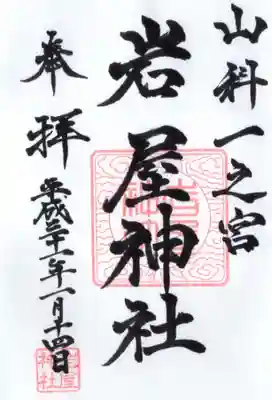 山科一之宮
岩屋神社
奉拝
平成二十一年一月十四日
岩屋神社